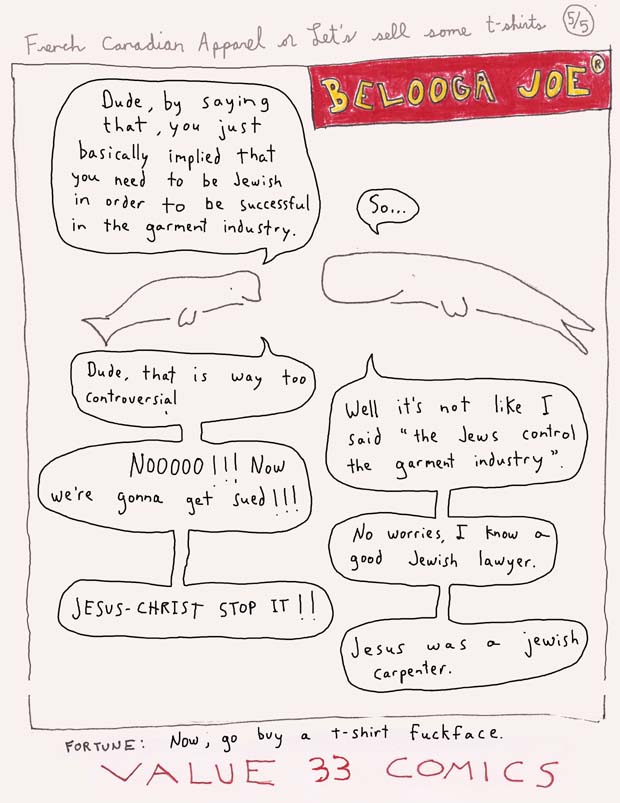 French Canadian Apparel or Let's sell some t-shirts 5/5
BELOOGA JOE®
Dude, by saying
that, you just
basically implied that
you need to be Jewish
in order to be successful
in the garment industry.
So...
Dude, that is way too
controversial
Well it's not like I
said "the Jews control
the garment industry".
NOOOOO!!! Now
we're gonna get sued!!!
No worries, I know a
good Jewish lawyer.
JESUS-CHRIST STOP IT!!
Jesus was a jewish
carpenter.
FORTUNE: Now, go buy a t-shirt fuckface.
VALUE 33 COMICS